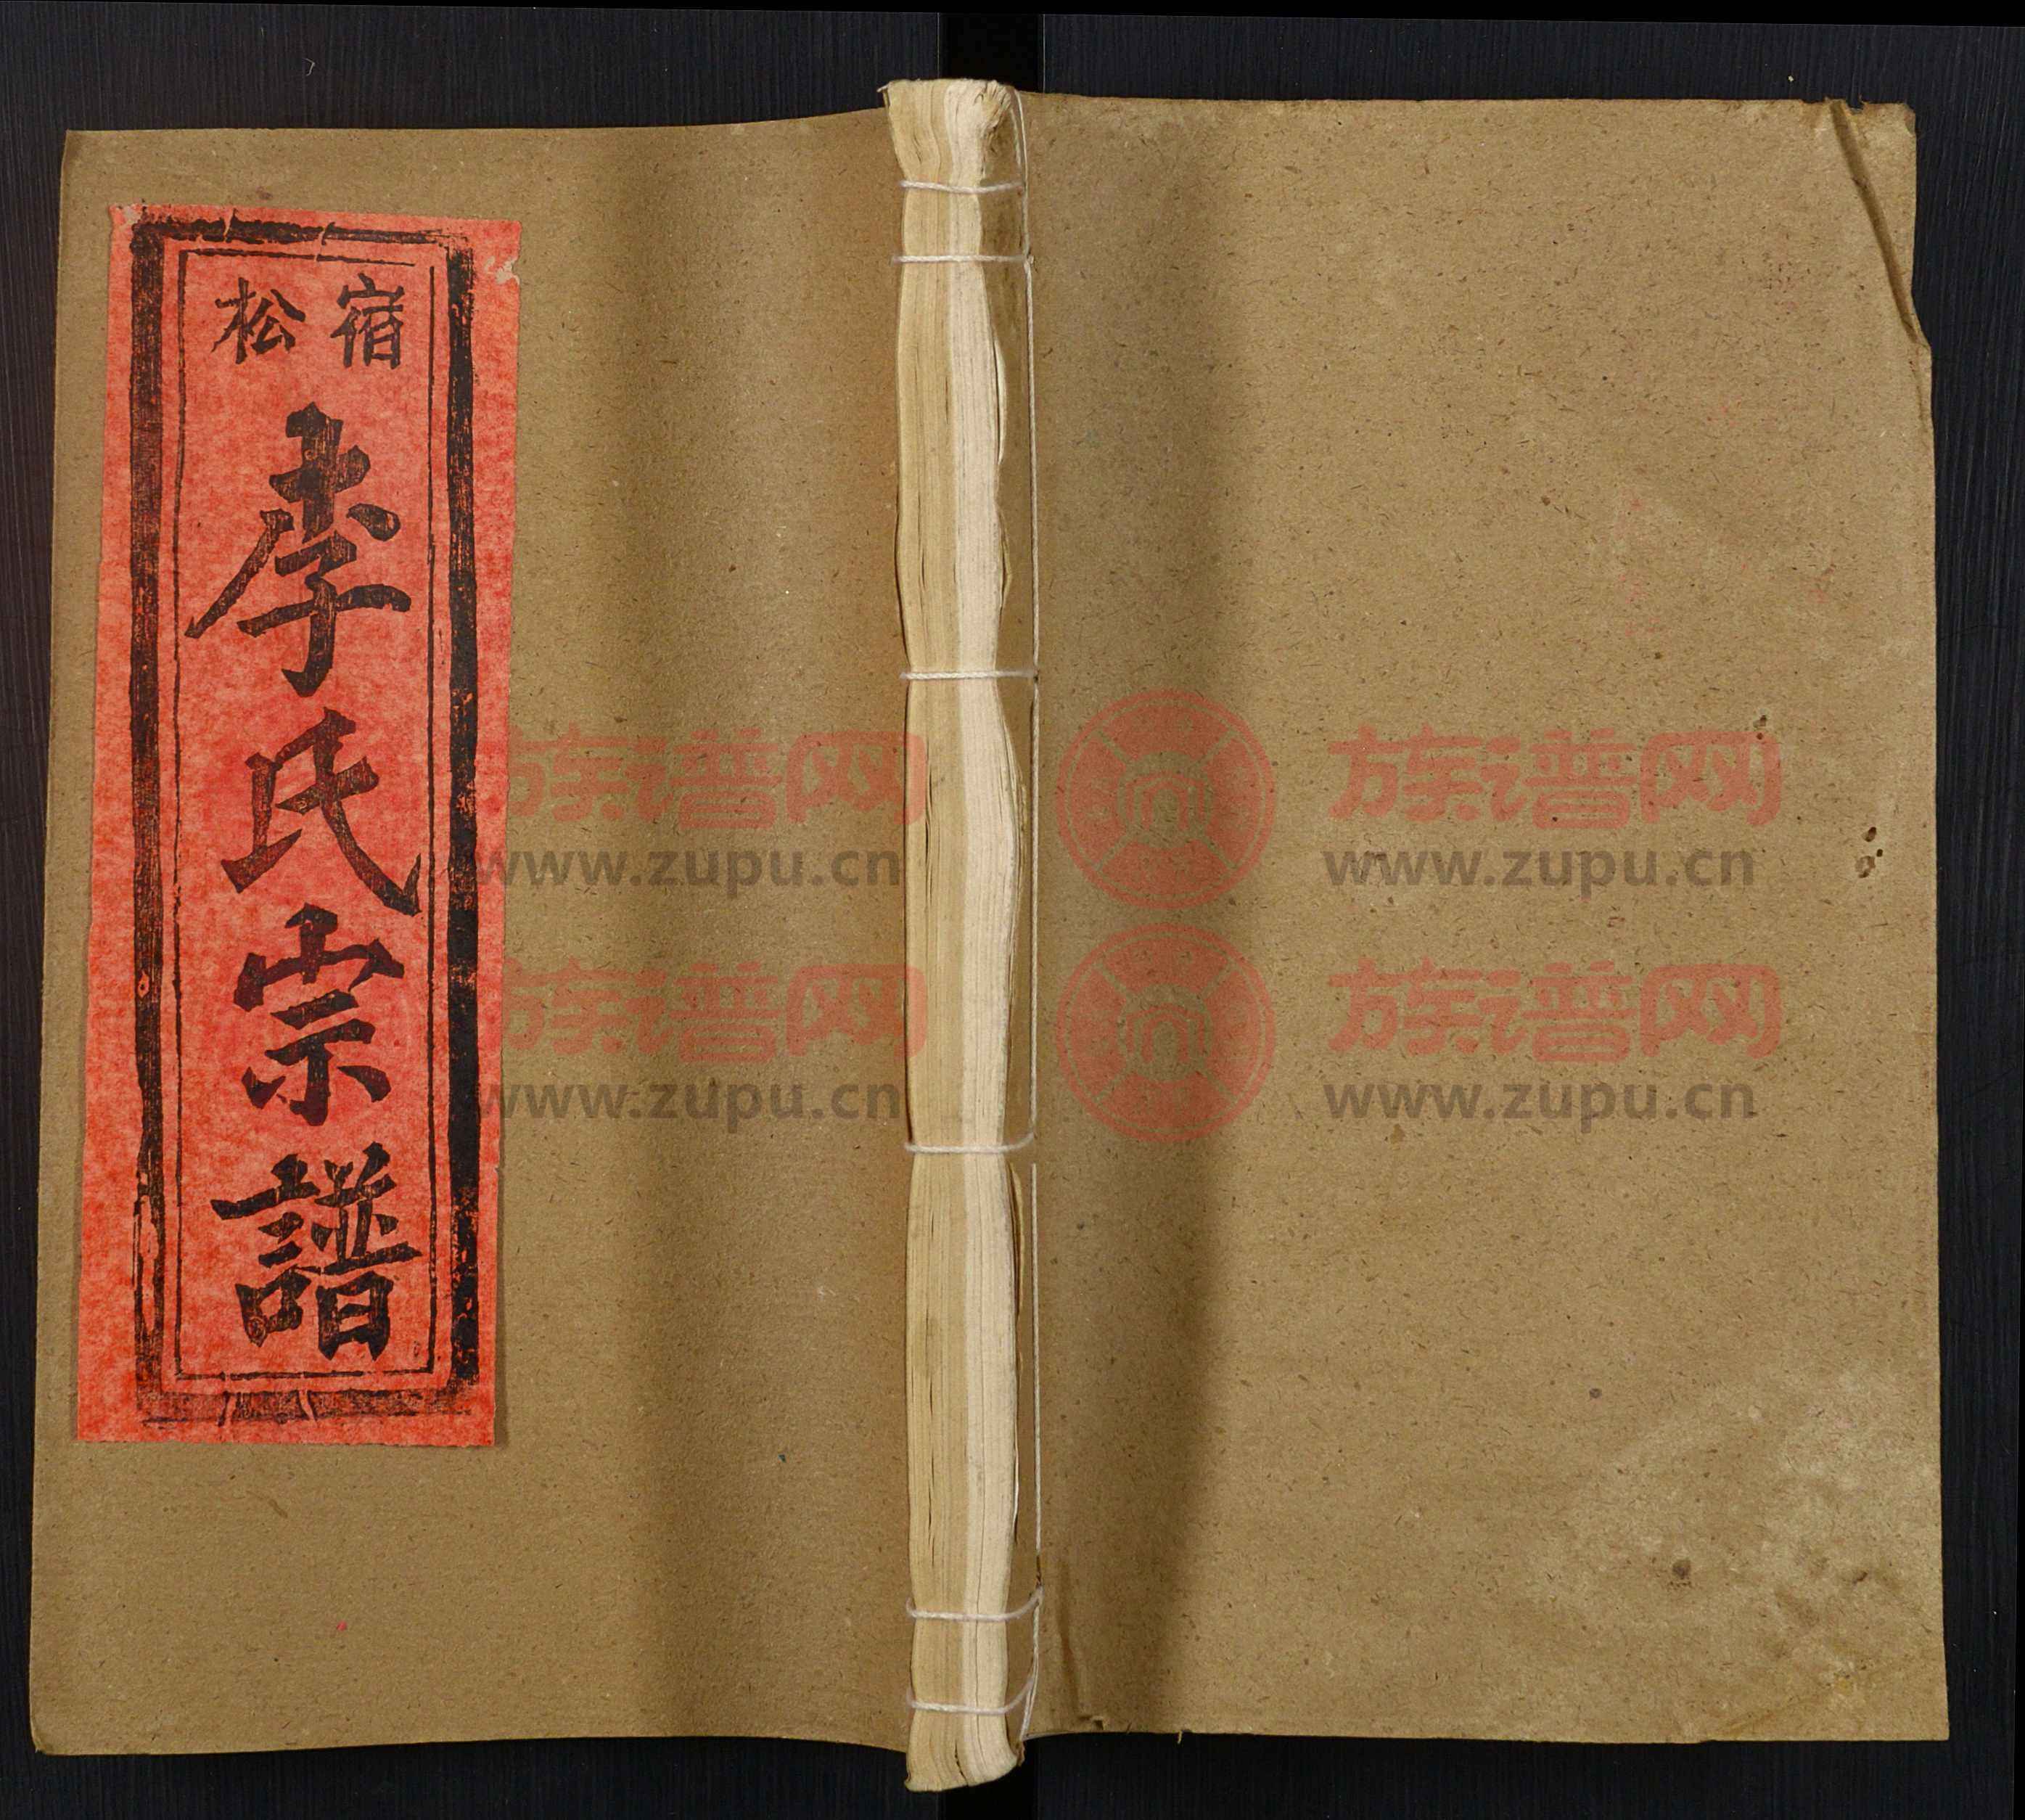 宿松
李氏宗譜
族谱网
www.zupu.cn
族谱网
www.zupu.cn
族谱网
www.zupu.cn
族谱网
www.zupu.cn